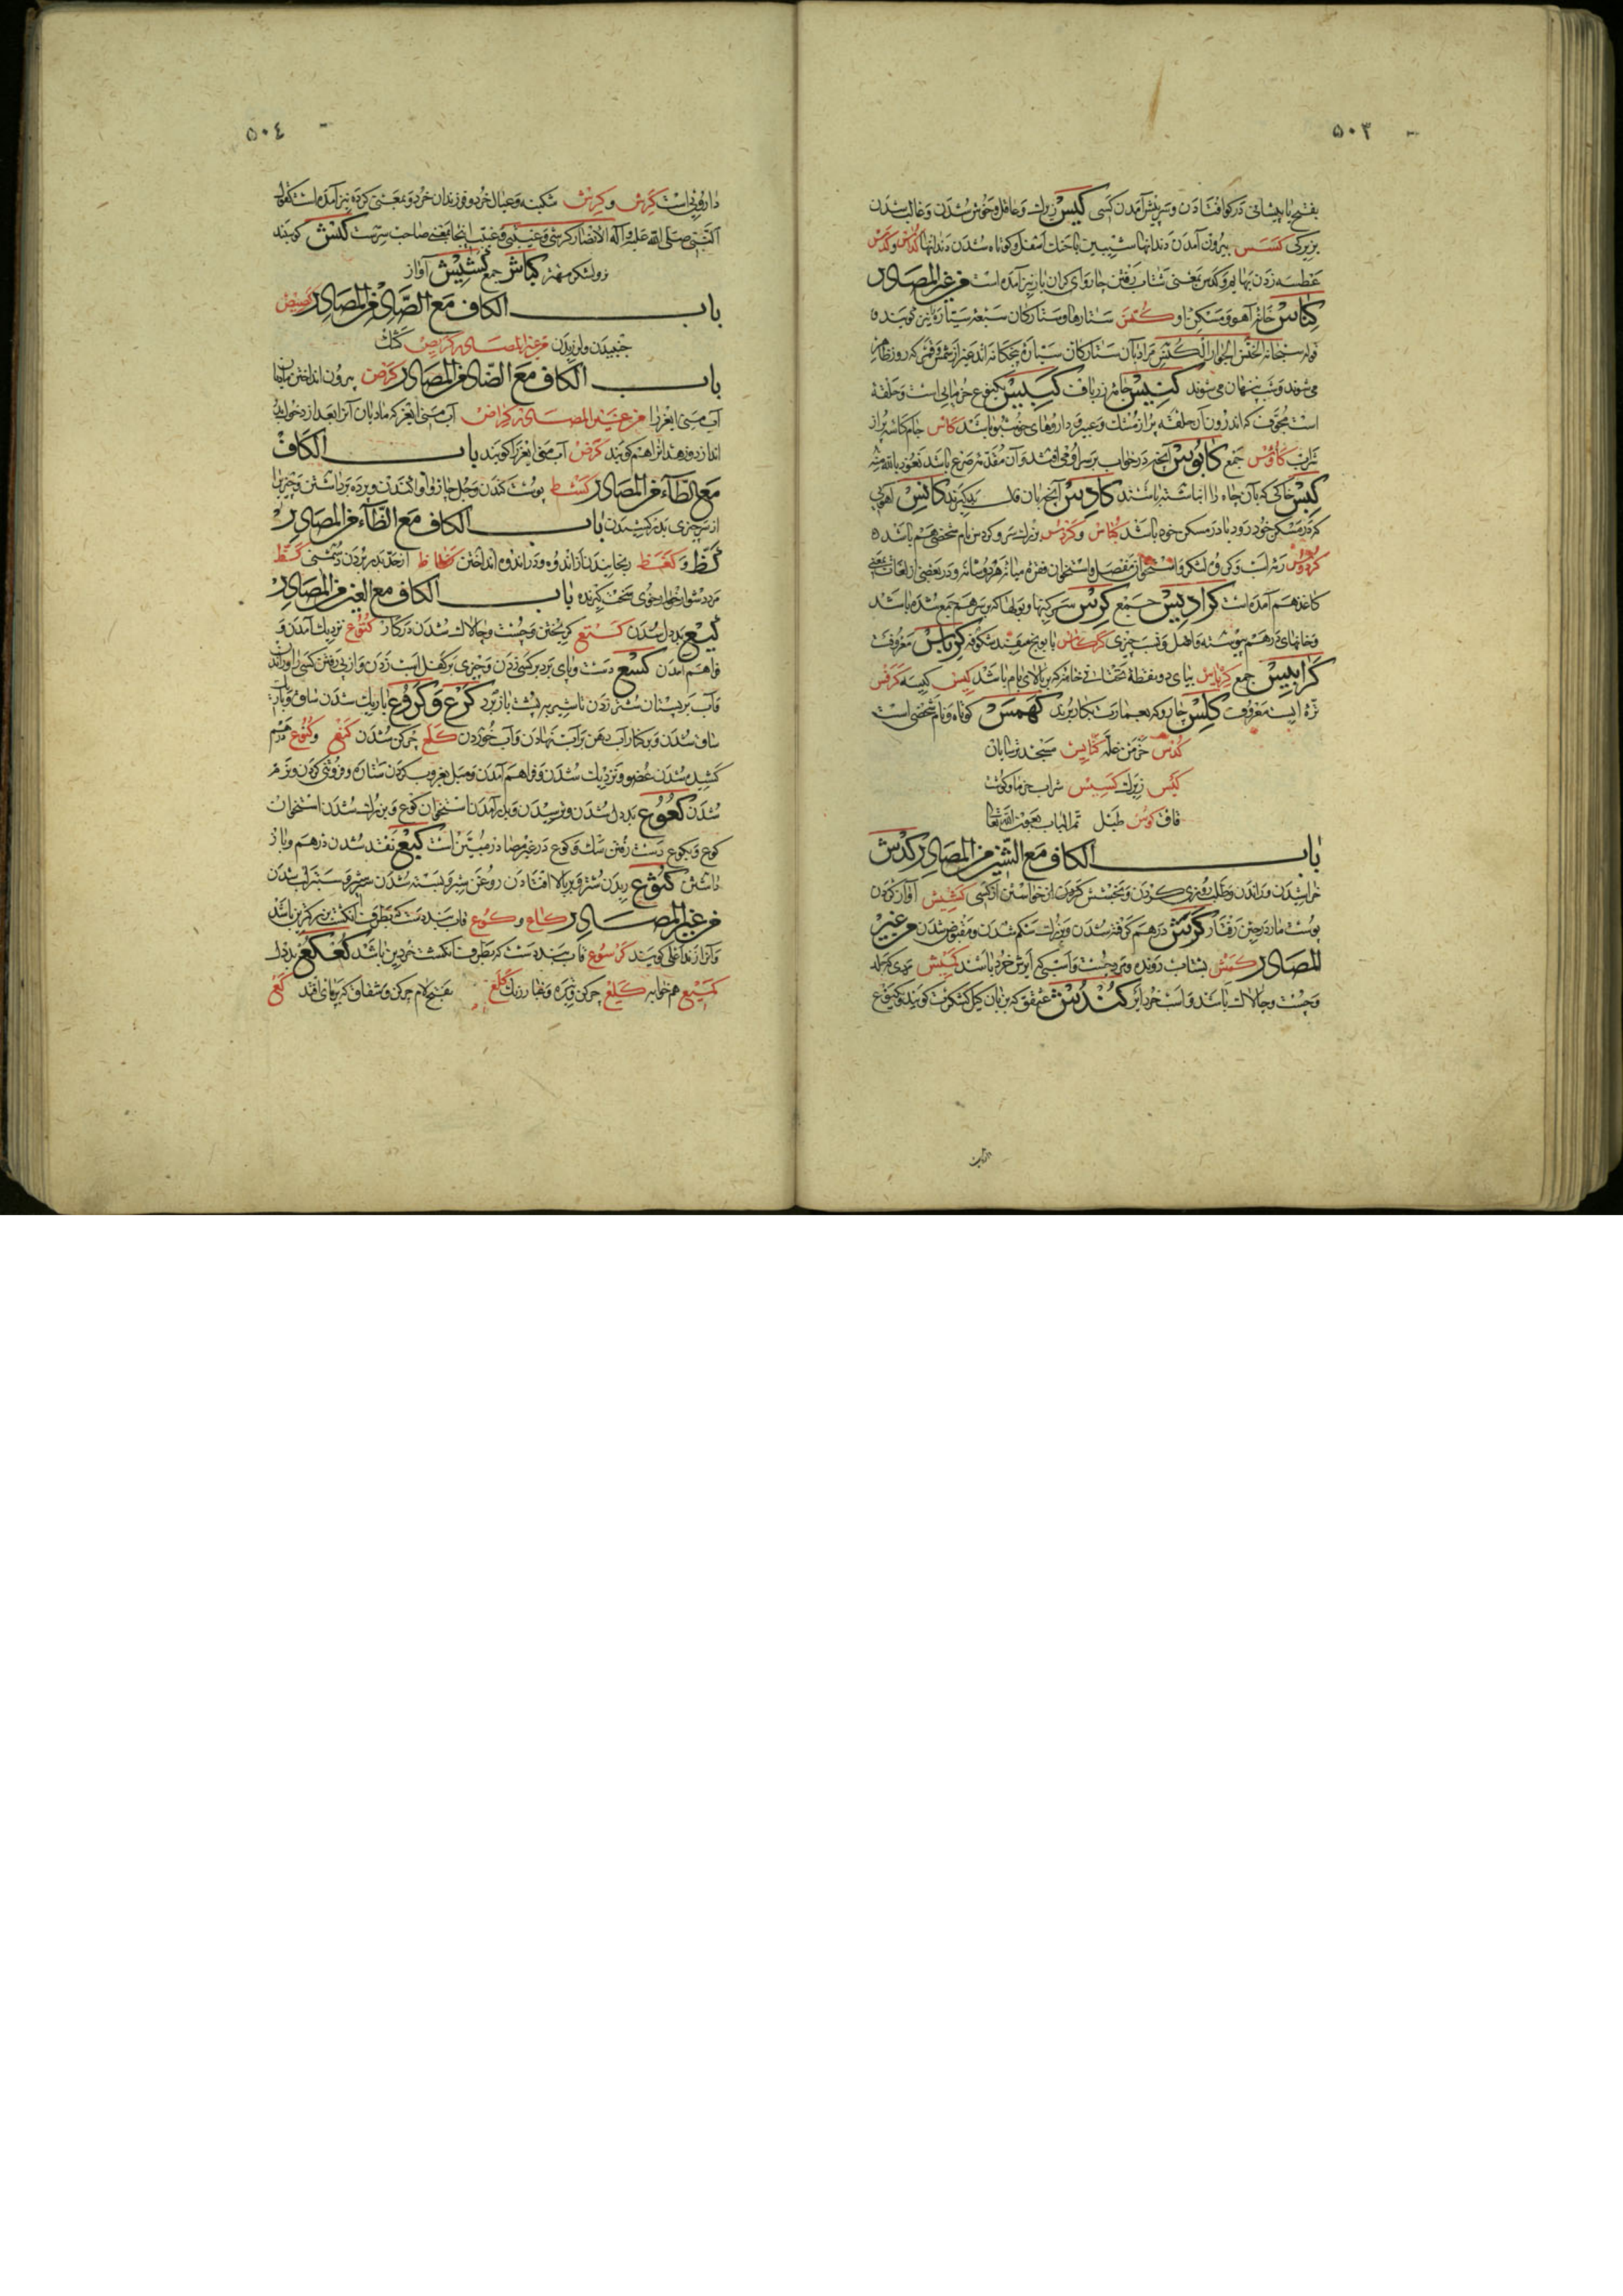 ٥٠٣
بفتح با پیشانی در کو افتادن و سر پیش آمدن کسی کیس زیرك و عاقل و خوش شدن و غالب شدن
بزیرکی کسس بیرون آمدن دندانها شیبین با حنك اسفل و کوتاه شدن دندانها کداس و کدس
عطسه زدن بهایم و کدس بمعنی شتاب رفتن چاروای کران بار نیز آمده است من غیر المصادر
کناس خانه آهو و مسکن او کنس ستارها و ستارکان سبعه سیاره نیز میکویند
قوله سبحانه الخنس الجوار الکنس مراد بآن ستارکان سیاره پنجکانه اند غیر از شمس و قمر که روز ظاهر
می شوند و شب پنهان می شوند کنیس جامه زرباف کبیس یکنوع خرمایی است و حلقه
است مجوف که اندرون آن حلقه پر از مشك و عبیر و داروهای خوشبو باشد کاس جام کاسه پر از
شراب کاوس جمع کابوس آنچه در خواب بر سر او می افتد و آن مقدمه صرع باشد نعوذ بالله منه
کبس خاکی که بآن چاه را انباشته باشند کادس آنچه بآن فال بد کیرند کانس آهوئی
که در مسکن خود رود یا در مسکن خود باشد کناس و کردس بزرك سر و کردس نام شخصی هم باشد
کردوس رمه اسب و کروه لشکر و استخوان مفصل و استخوان فقره میانه هر دو شانه و در بعضی از لغات بمعنی
کاغذ هم آمده است کرادیس جمع کرس سرکینها و بولها که بر سر هم جمع شده باشد
و خانهای در هم پیوسته و اصل و نسب چیزی کرکاس بابونج سفید شکوفه کرباس معروفست
کرابیس جمع کریاس بیای دو نقطه تحتانی خانه که بر بالای بام باشد کیس کیسه کرفس
تره ایست معروف کلس چاروکه بعمارت بکار برند کهمس کوتاه و نام شخصی است
کدس خرمن غله کنایس مسجد ترسایان
کیس زیرك کسیس شراب خرما و کوشت
قاق کوس طبل تم الباب بعون الله تعالی
باب الکاف مع الشین من المصادر کدش
خراشیدن و راندن و طلب روزی کردن و بخشش کردن از خواستن از کسی کشیش آواز کردن
پوست مار در حین رفتار کرش در هم کرفته شدن و بزرك شکم شدن و مقبوض شدن من غیر
المصادر کمش بشتاب رونده و مرد چست و اسبی که ایرش خرد باشد کمیش مردی که جلد
و چست و چالاك باشد و اسب خرد ایر کندش عقعق که بزبان کیل کشکرت کویند و یکنوع
٥٠٤
داروئی است کرش و کرش شکنبه و عیال خرد و فرزندان خرد و بمعنی کروه نیز آمده است کقول
النبی صلی الله علیه و آله الانصار کرشی و عیبتی و عیبت اینجا بمعنی صاحب سر است کبش کویند
نر و لشکر مهتر کباش جمع کشیش آواز
باب الکاف مع الصاد من المصادر کصیص
جنبیدن و لرزیدن من غیر المصادر کریص کشك
باب الکاف مع الضاد من المصادر کرض بیرون انداختن مادیان
آب منی ایغر را من غیر المصادر کراض آب منی ایغر که مادیان آنرا بعد از دخول
اندازد و رهدانرا هم کویند کرض آب منی ایغر را کویند باب الکاف
مع الطاء من المصادر کشط پوست کندن و جل چاروا وا کندن و پرده برداشتن و چیزیرا
از سر چیزی بدر کشیدن باب الکاف مع الظاء من المصادر
کظ و کغظ رنجانیدن از اندوه و در اندوه انداختن کظاظ از حد بدر بردن دشمنی کظ
مرد دشوار خوار خوی سخت کیرنده باب الکاف مع العین من المصادر
کیع بددل شدن کتع کریختن و چست و چالاك شدن در کار کنوع نزدیك آمدن و
فراهم آمدن کسع دست و پای بر دبر کسی زدن و چیزی بر کفل اسب زدن و از پی رفتن کسی را و راندن
و آب بر پستان شتر زدن تا شیر به پشت باز برد کرع و کروع باریك شدن ساق و باریك
ساق شدن و بر کنار آب دهن بر آب نهادن و آب خوردن کلع چرکن شدن کنع و کنوع در هم
کشیده شدن عضو و نزدیك شدن و فراهم آمدن و میل بغروب کردن ستاره و فروتنی کردن و نرم
شدن کعوع بددل شدن و ترسیدن و بدر آمدن استخوان کوع و بزرك شدن استخوان
کوع و بکوع دست رفتن سك و کوع در غیر مصادر مبین است کبع نقد شدن درهم و باز
داشتن کثوع ریدن شتر و بر بالا افتادن روغن شیر و بسته شدن شیر و ستبر لب شدن
من غیر المصادر کاع و کوع بند دست که بطرف انکشت بزركترین باشد
و آنرا زند اعلی کویند کرسوع بند دست که بطرف انکشت خردین باشد کعکع بددل
کمیع هم خوابه کلع چرکن و غبار رنك کلع بفتح لام چرکن و شقاق که بر پای افتد کع